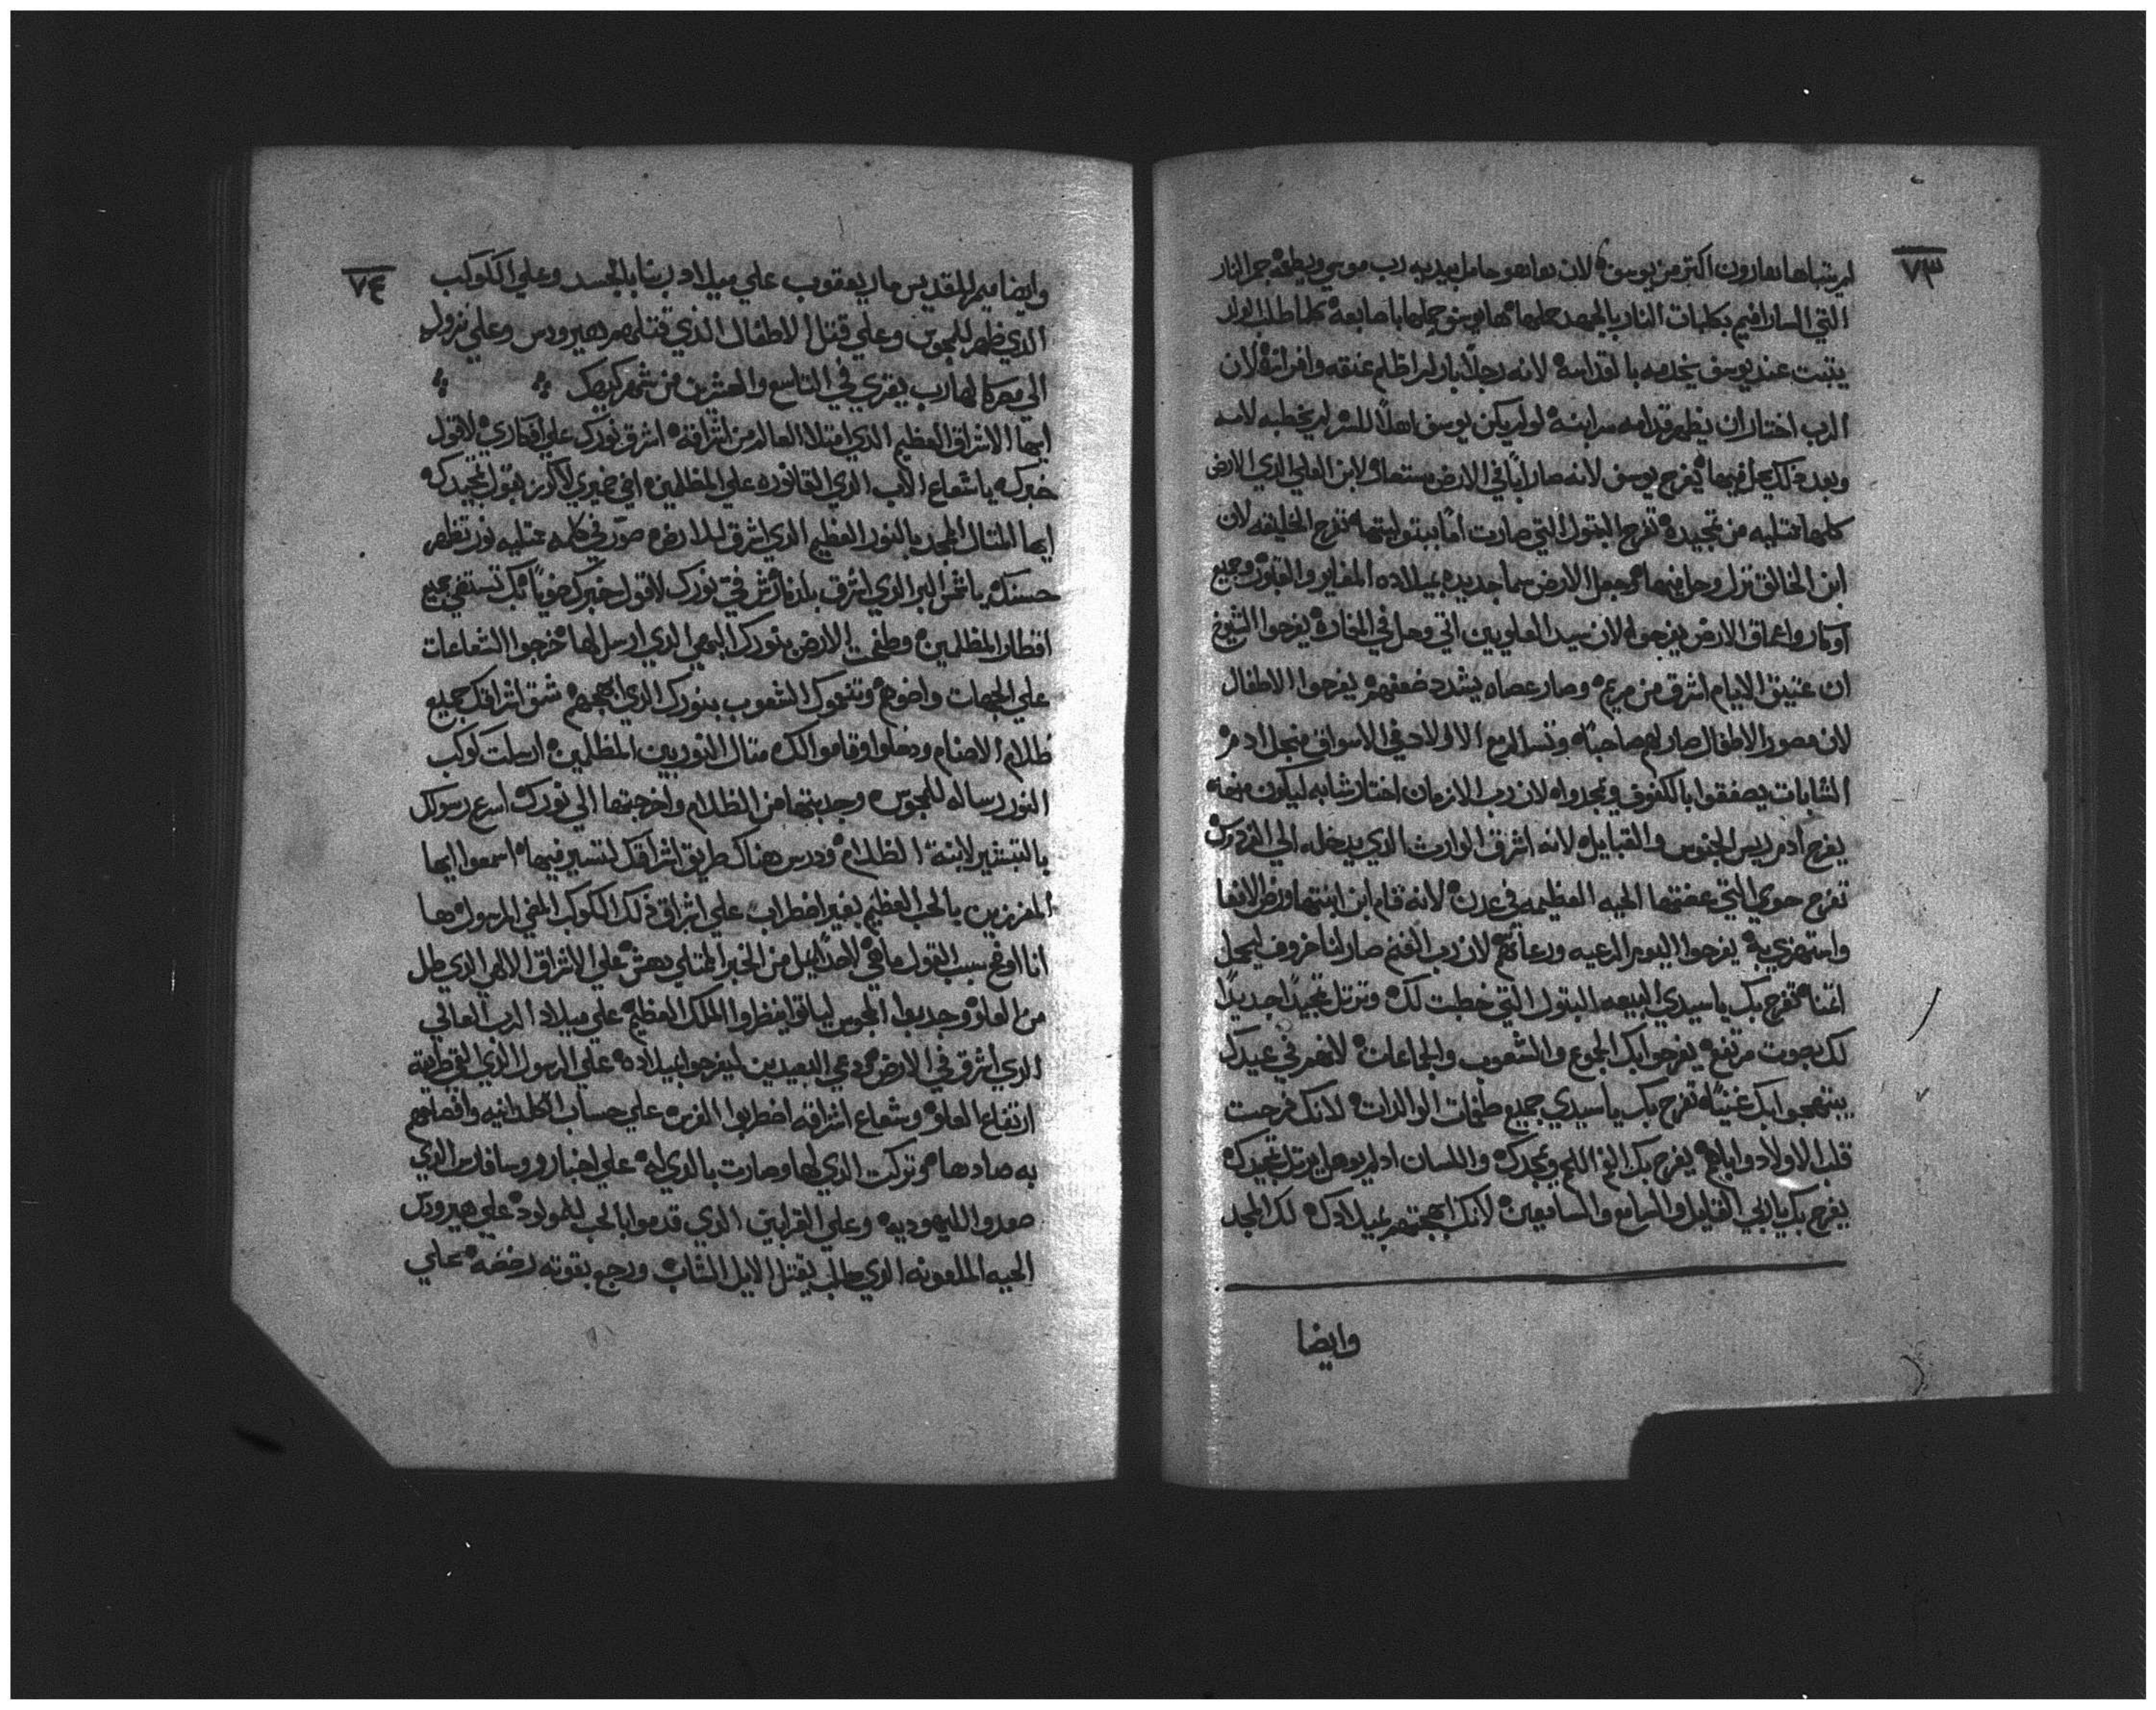 ٧٣
لم يتباها هارون اكتر من يوسف لان هاهو حامل بيديه رب موسي ويطفه جمر النار
التي السارافيم بكلبات النار بالجهد حملها ها يوسف حملها باصابعه كلما طلب الولد
يتبت عند يوسف يخدمه بالقداسه لانه رجلا بار لم اظلم عنقه وافرانه لان
الرب اختار ان يظهر قدامه سر ابنه لو لم يكن يوسف اهلا للسر لم يخطبه لامه
وبعد ذلك حل فيها يفرح يوسف لانه صار ابا في الارض مستعار لابن العلي الذي الارض
كلها ممتليه من تمجيده تفرح البتول التي صارت اما ببتوليتها تفرح الخليقه لان
ابن الخالق نزل وحل فيها وجعل الارض سما جديده بميلاده المغاير والقبور وجميع
اوكار واعماق الارض يفرحوا لان سيد العلويين اتي وحل في المغاره يفرحوا الشيوخ
ان عتيق الايام اشرق من مريم وصار عصاه يشدد ضعفهم يفرحوا الاطفال
لان مصور الاطفال صار لهم صاحبا وتسالم مع الاولاد في الاسواق نجل ادم
الشابات يصفقوا بالكفوف ويمجدوا لان رب الازمان اختار شابه ليكون منها
يفرح ادم ريس الجنوس والقبايل لانه اشرق الوارث الذي يدخله الي الفردوس
تفرح حوي التي عضتها الحيه العظيمه في عدن لانه قام ابن ابنتها ورض الافعا
واستهزي به يفرحوا اليوم الرعيه ورعاتهم لان رب الغنم صار لنا خروف ليحمل
اتمنا تفرح بك ياسيدي البيعه البتول التي خطبت لك وترتل تمجيدا جديدا
لك بصوت مرتفع يفرحوا بك الجموع والشعوب والجماعات لانهم في عيدك
يبتهجوا بك غنيا تفرح بك ياسيدي جميع طغمات الوالدات لانك فرحت
قلب الاولاد وابايهم يفرح بك الفم اللحم ويمجدك واللسان اد لم يوهل يرتل تمجيدك
يفرح بك يا ربي القايل والسامع والسامعين لانك ابهجتهم بميلادك لك المجد
وايضا
٧٤
وايضا ميمر للقديس مار يعقوب علي ميلاد ربنا بالجسد وعلي الكوكب
الذي ظهر للمجوس وعلي قتل الاطفال الذي قتلهم هيرودس وعلي نزوله
الي مصر كالهارب يقري في التاسع والعشرين من شهر كيهك
ايها الاشراق العظيم الذي امتلا العالم من اشراقه اشرق نورك علي افكاري لاقول
خبرك ياشعاع الاب الذي القا نوره علي المظلمين اضي ضميري لاكرز بقول تمجيدك
ايها المتال الممجد بالنور العظيم الذي اشرق للارض صور في كلمه ممتليه نور تظهر
حسنك ياشمس البر الذي اشرق بلدنا اشرق في نورك لاقول خبرك ضويا بك تستضي جميع
اقطار المظلمين وطفت الارض بنورك البهي الذي ارسل لها خرجوا الشعاعات
علي الجهات واضوهم وتنعموك الشعوب بنورك الذي ابهجهم شق اشراقك جميع
ظلام الاصنام ودخلوا وقاموا لك متال النوريين المظلمين ارسلت كوكب
النور رساله للمجوس وجدبتها من الظلام واخرجتها الي نورك اسرع رسولك
بالتبشير لابنة الظلام ودرس هناك طريق اشراقك لتسير فيها اسمعوا ايها
المفرزين بالحب العظيم بغير اضطراب علي اشراق ذلك الكوكب المضي المرسول ها
انا اوضح بسبب القول ماهي لاحد الجيل من الخبر الممتلي دهش علي الاشراق الالهي الذي طل
من العلو وجدبوا المجوس لياتوا ينظروا الملك العظيم علي ميلاد الرب العالي
الذي اشرق في الارض ودعي البعيدين ليفرحوا بميلاده علي الرسول الذي القي طريقه
ارتفاع العلو وشعاع اشراقه اضطربوا الفرس علي حساب الكلدانيه وافصلهم
به صادها وتركت الذي لها وصارت بالذي له علي اخبار روسا فارس الذي
صعدوا لليهوديه وعلي القرابين الذي قدموا بالحب للمولود علي هيرودس
الحيه الملعونه الذي طلب يقتل الايل الشاب ورجع بقوته رضضه علي